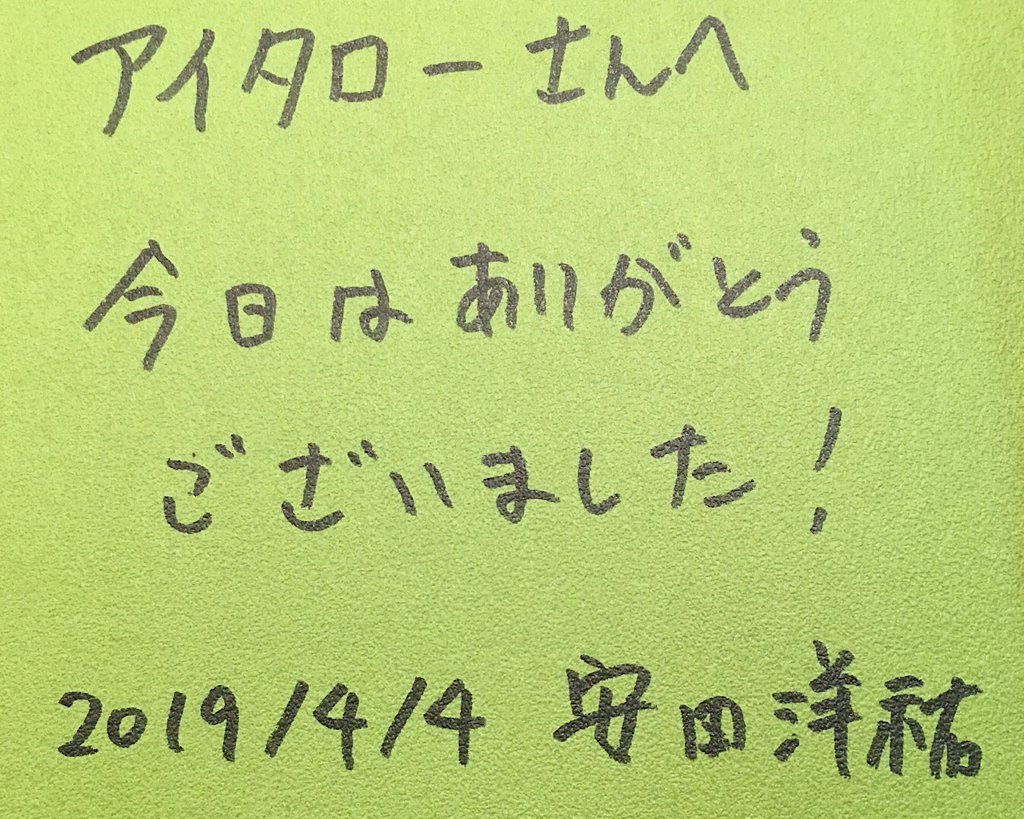 アイタローさんへ
今日はありがとう
ございました!
2019/4/4 安田洋祐